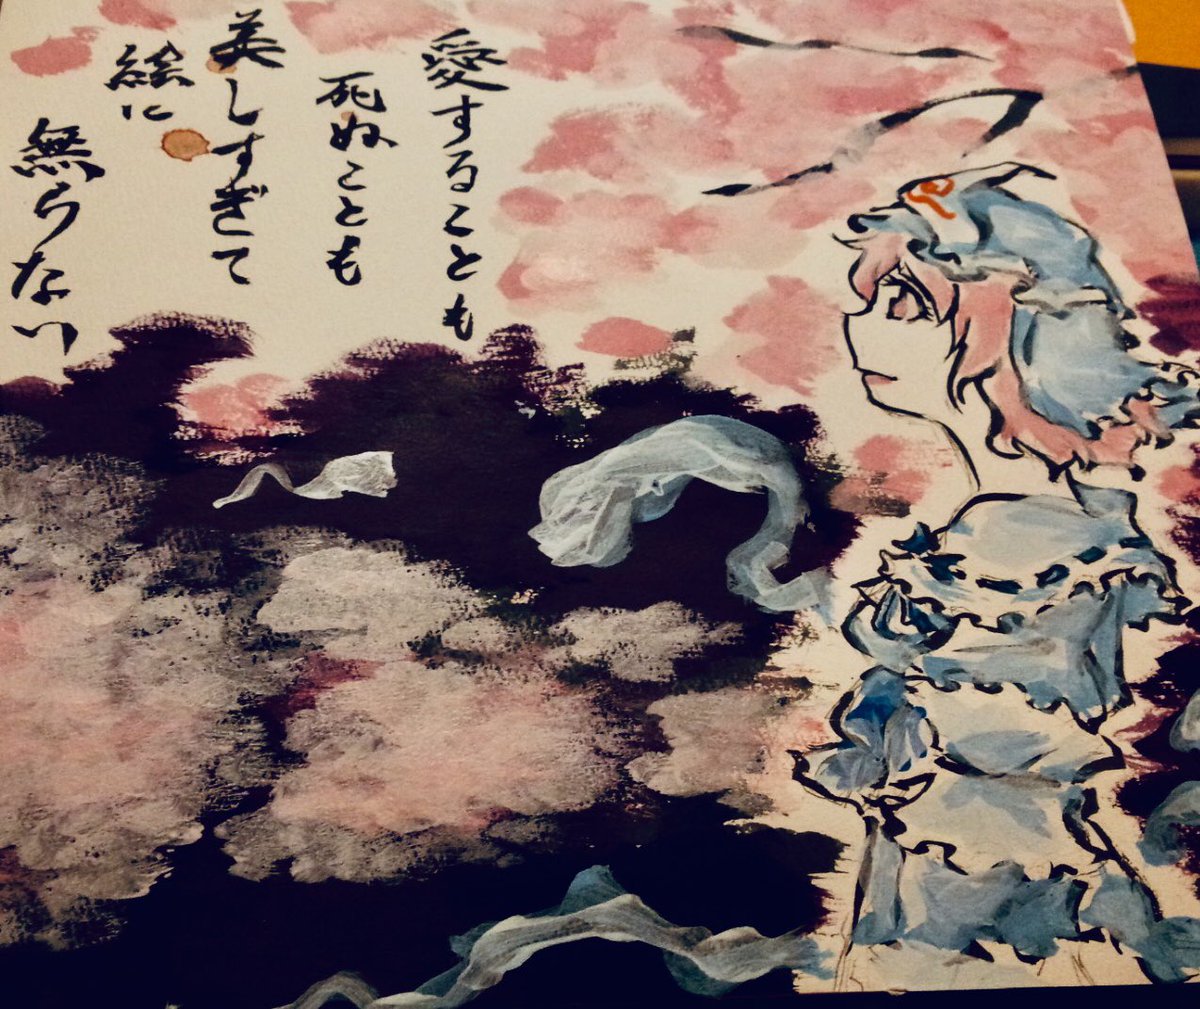 愛することも
死ぬことも
美しすぎて
絵に
無らない